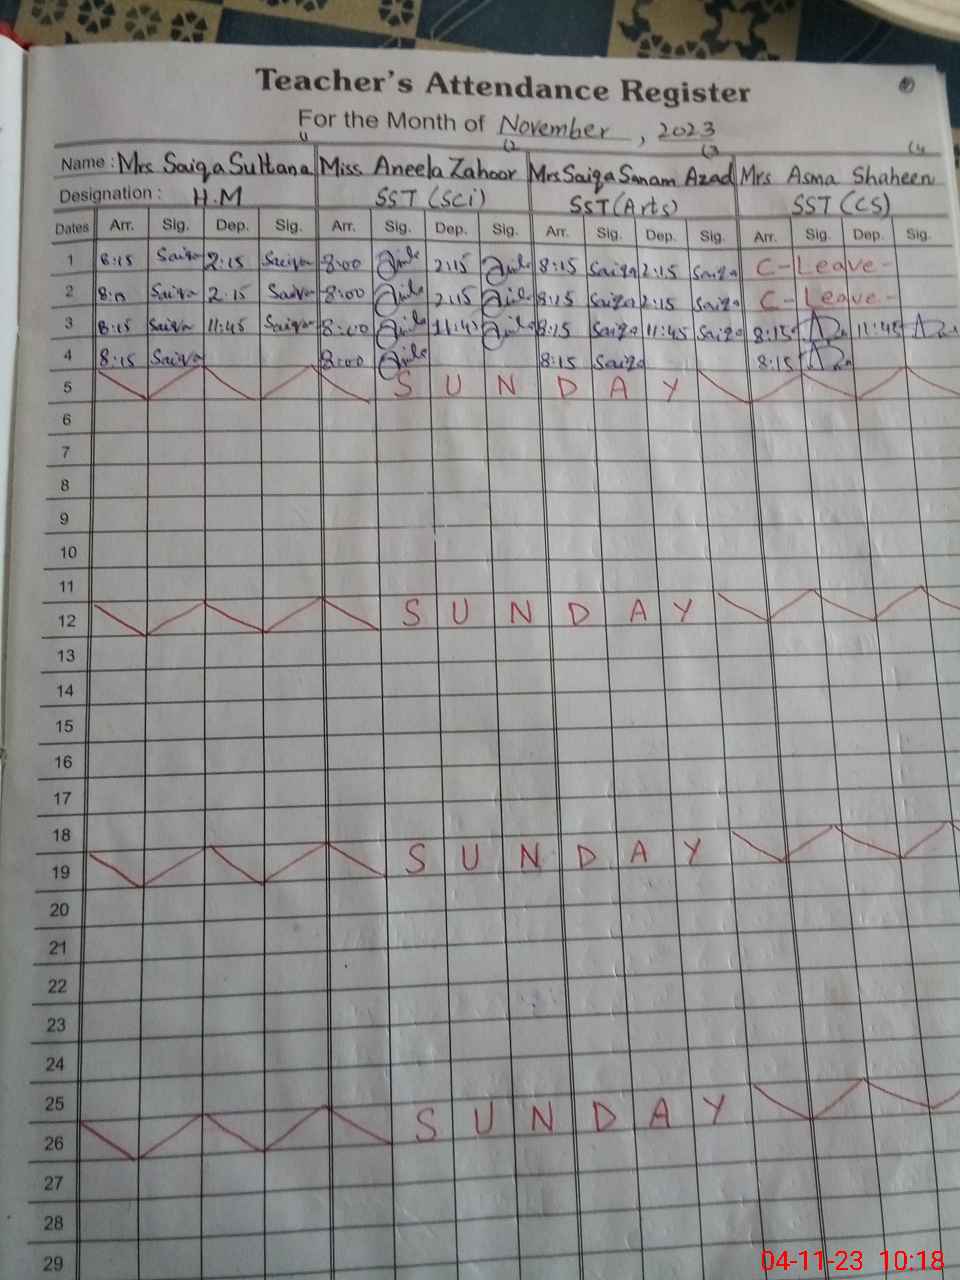 Teacher's Attendance Register
For the Month of November, 2023
Name : Mrs Saiqa Sultana Miss Aneela Zahoor Mrs Saiqa Sanam Azad Mrs Asma Shaheen
Designation : H.M SST (Sci) SST (Arts) SST (CS)
Dates Arr. Sig. Dep. Sig. Arr. Sig. Dep. Sig. Arr. Sig. Dep. Sig. Arr. Sig. Dep. Sig.
1 8:15 Saiqa 2:15 Saiqa 8:00 2:15 8:15 Saiqa 2:15 Saiqa C-Leave-
2 8:15 Saiqa 2:15 Saiqa 8:00 2:15 8:15 Saiqa 2:15 Saiqa C-Leave-
3 8:15 Saiqa 11:45 Saiqa 8:00 11:45 8:15 Saiqa 11:45 Saiqa 8:15 11:45
4 8:15 Saiqa 8:00 8:15 Saiqa 8:15
5 SUNDAY
6
7
8
9
10
11
12 SUNDAY
13
14
15
16
17
18
19 SUNDAY
20
21
22
23
24
25
26 SUNDAY
27
28
29
04-11-23 10:18